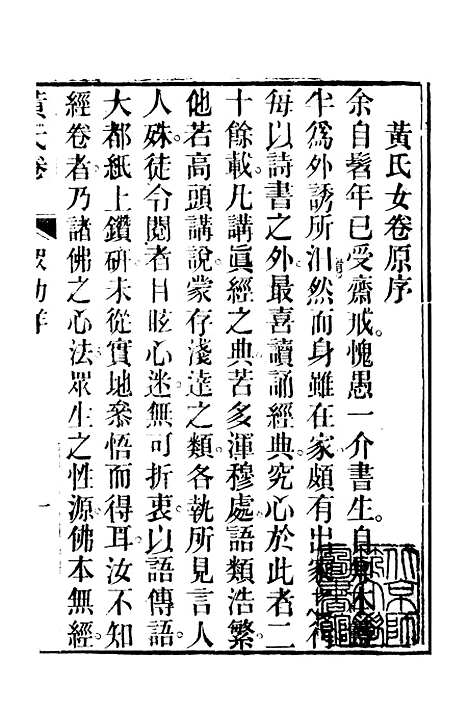 黃氏女卷原序
余自髫年已受齋戒愧愚一介書生自
牛爲外誘所汨然而身雖在家頗有出家之行
每以詩書之外最喜讀誦經典究心於此者二
十餘載凡講眞經之典苦多渾穆處語類浩繁
他若高頭講說蒙存淺達之類各執所見言人
人殊徒令閱者目眩心迷無可折衷以語傳語
大都紙上鑽研未從實地叅悟而得耳汝不知
經卷者乃諸佛之心法眾生之性源佛本無經
黃氏卷
一